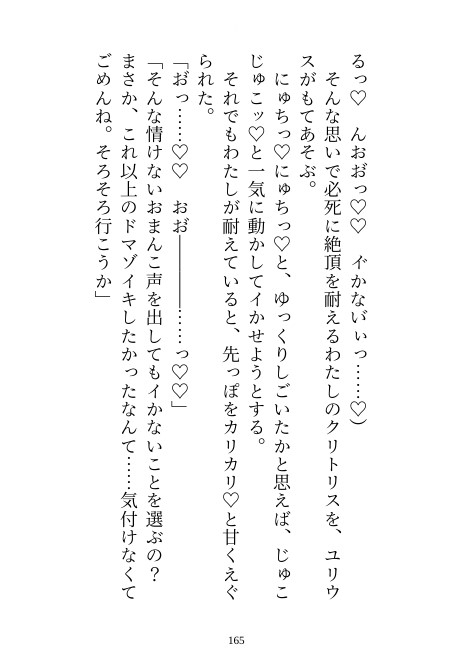 るっ♡　んおお゙っ♡♡　イ゙かな゙い゙ぃっ……♡）
　そんな思いで必死に絶頂を耐えるわたしのクリトリスを、ユリウ
スがもてあそぶ。
　にゅちっ♡にゅちっ♡と、ゆっくりしごいたかと思えば、じゅこ
じゅこッ♡と一気に動かしてイかせようとする。
　それでもわたしが耐えていると、先っぽをカリカリ♡と甘くえぐ
られた。
「お゙っ……♡♡　おお゙――――……っ♡♡」
「そんな情けないおまんこ声を出してもイかないことを選ぶの？
まさか、これ以上のドマゾイキしたかったなんて……気付けなくて
ごめんね。そろそろ行こうか」
165